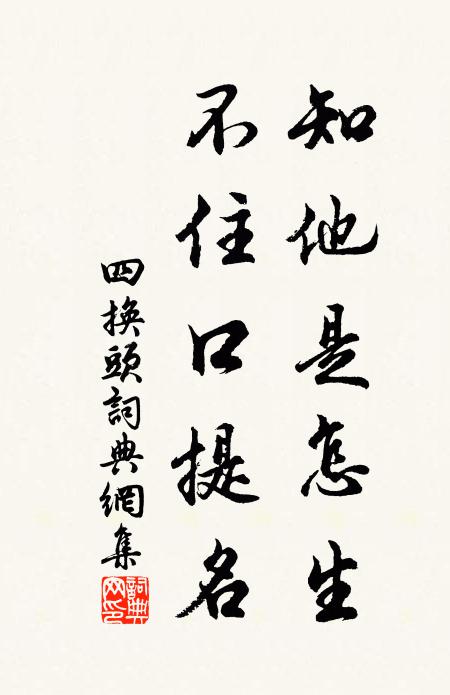 知他是怎生
不住口提名
四換頭詞典網集
詞典網印